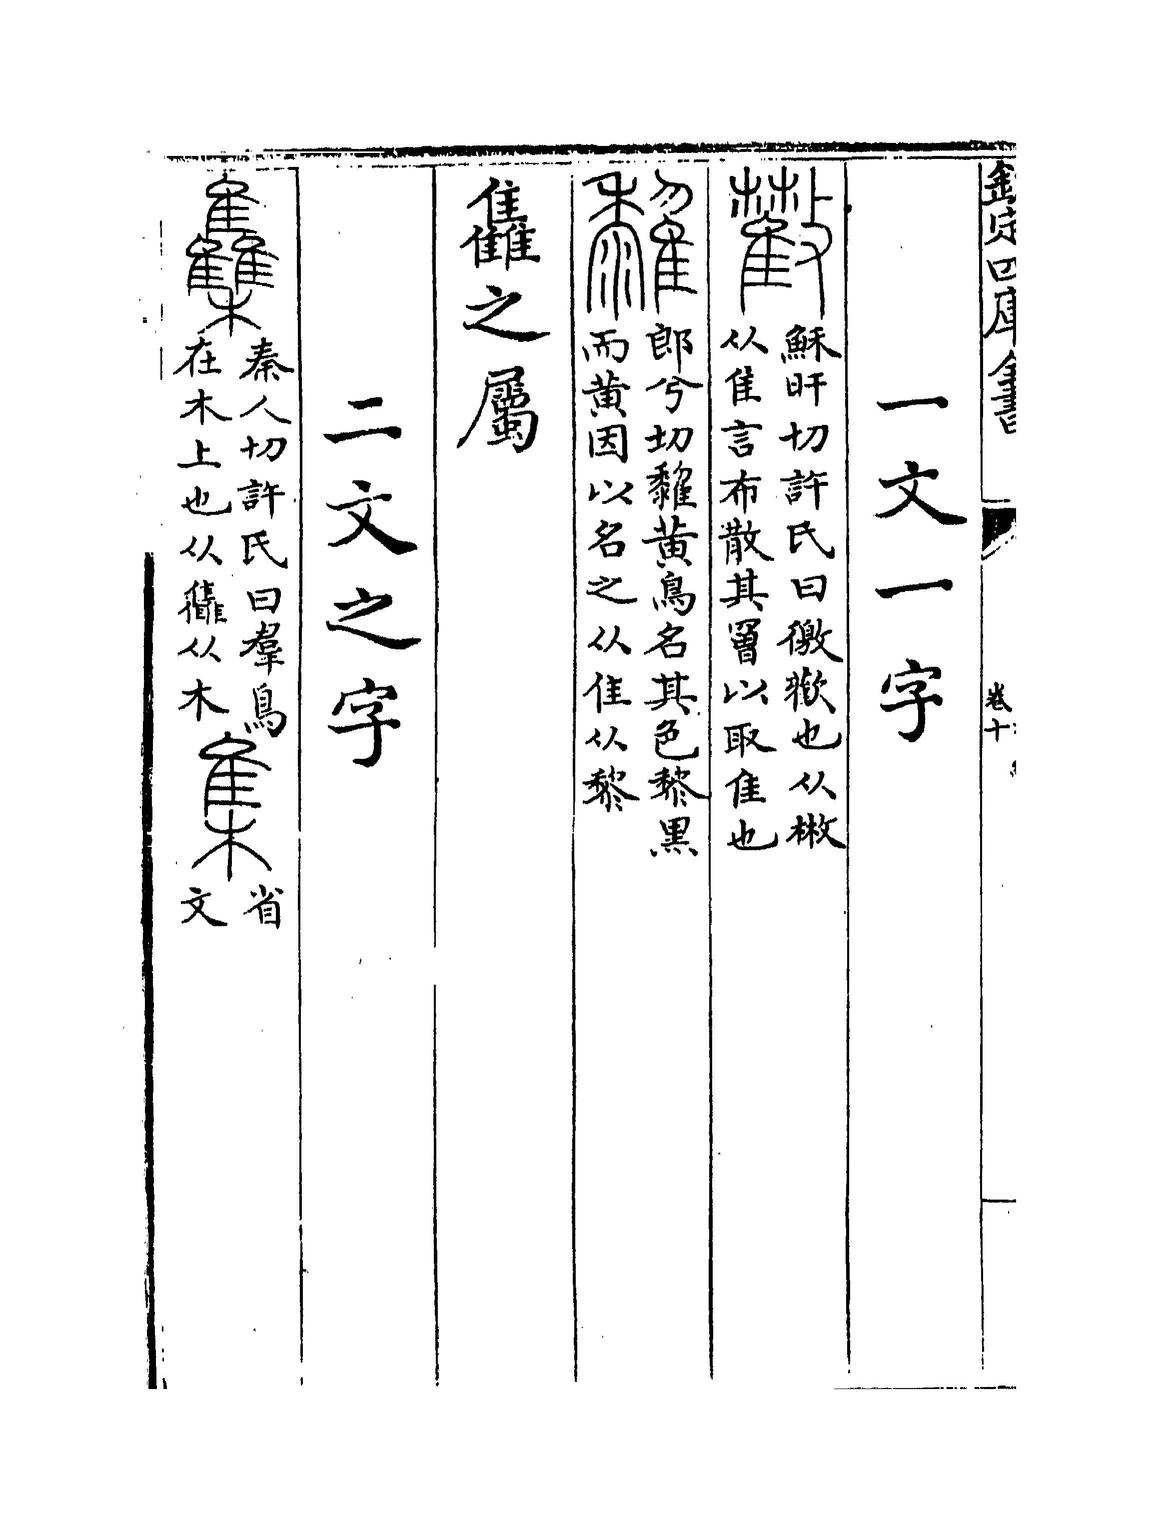 欽定四庫全書
卷十
一文一字
𢿱穌旰切許氏曰繳㪚也从㪔
从隹言布散其罾以取隹也
郎兮切黧黃鳥名其色黎黑
而黃因以名之从隹从黎
雥之屬
二文之字
雧秦人切許氏曰羣鳥
在木上也从雥从木
集省
文